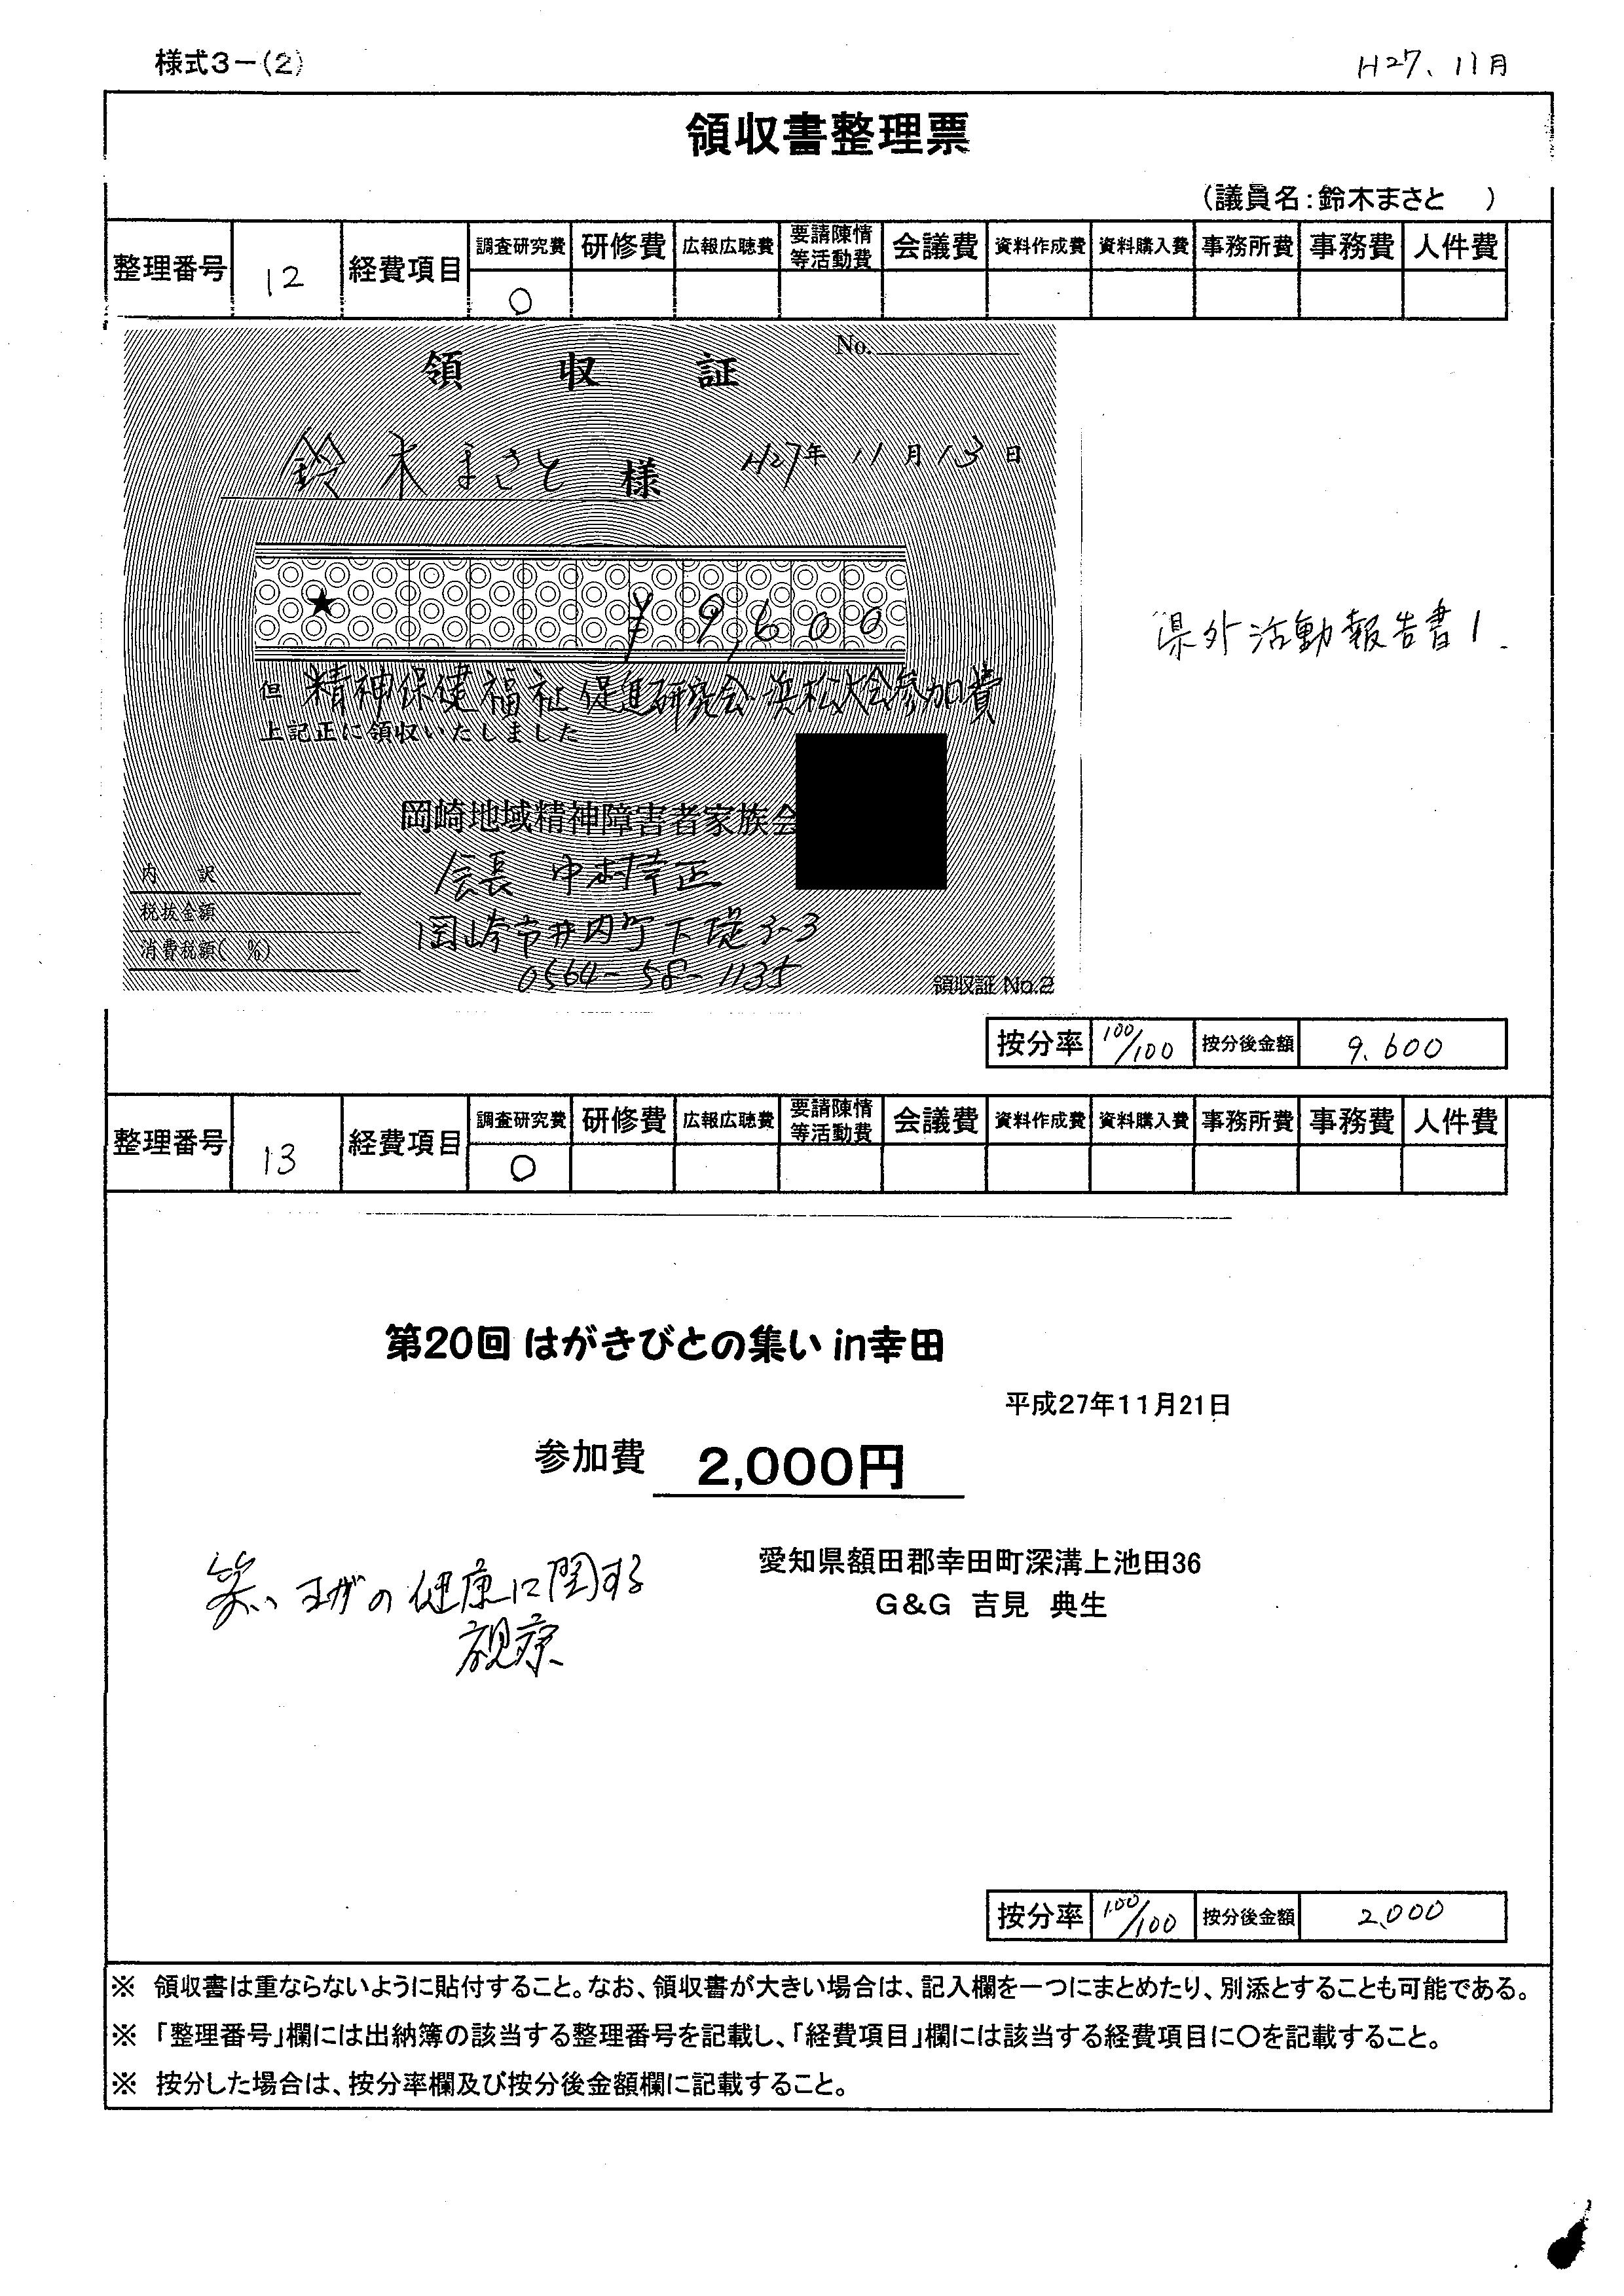 様式3-(2)
H27、11月
領収書整理票
(議員名:鈴木まさと )
整理番号 12 経費項目 調査研究費 研修費 広報広聴費 要請陳情等活動費 会議費 資料作成費 資料購入費 事務所費 事務費 人件費
○
領 収 証 No.
鈴木まさと 様 H27年 11月13日
★ ¥9,600
但 精神保健福祉促進研究会 浜松大会参加費
上記正に領収いたしました
県外活動報告書1.
岡崎地域精神障害者家族会
会長 中村幸正
岡崎市井内町下堤3-3
0564-58-1135
内 訳
税抜金額
消費税額( %)
領収証 No.2
按分率 100/100 按分後金額 9.600
整理番号 13 経費項目 調査研究費 研修費 広報広聴費 要請陳情等活動費 会議費 資料作成費 資料購入費 事務所費 事務費 人件費
○
第20回 はがきびとの集い in幸田
平成27年11月21日
参加費 2,000円
愛知県額田郡幸田町深溝上池田36
G&G 吉見 典生
笑いヨガの健康に関する
視察
按分率 100/100 按分後金額 2,000
※ 領収書は重ならないように貼付すること。なお、領収書が大きい場合は、記入欄を一つにまとめたり、別添とすることも可能である。
※ 「整理番号」欄には出納簿の該当する整理番号を記載し、「経費項目」欄には該当する経費項目に○を記載すること。
※ 按分した場合は、按分率欄及び按分後金額欄に記載すること。